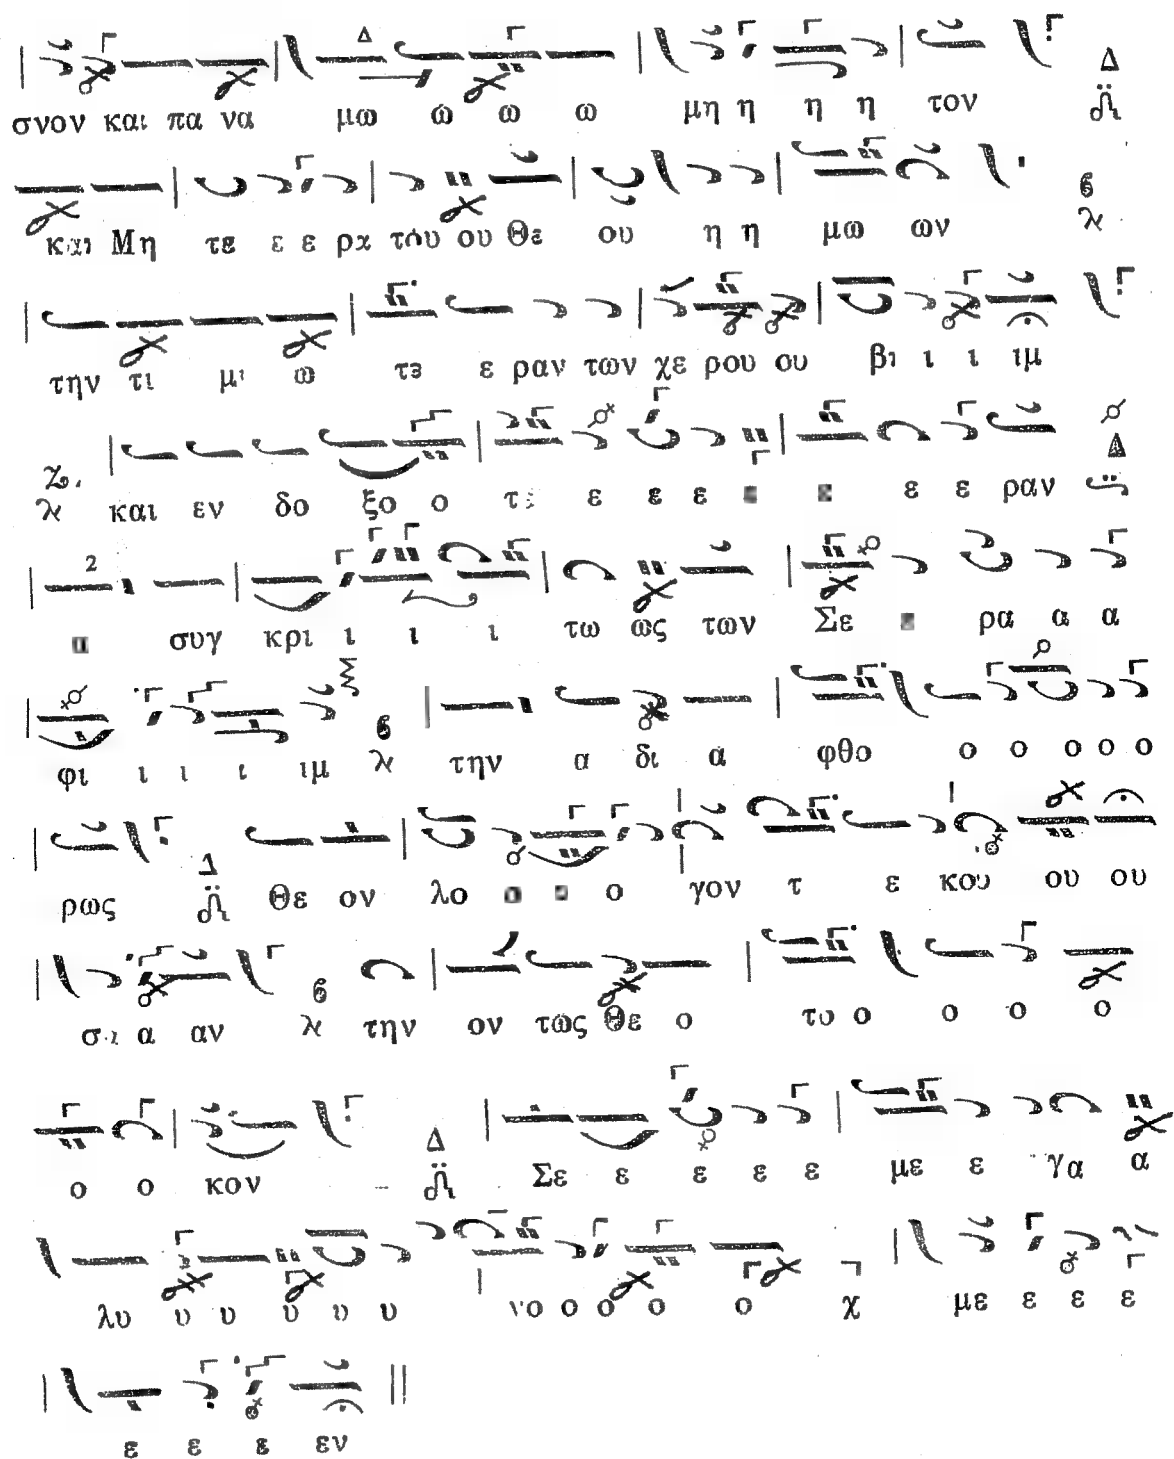 σνον και πα να μω ω ω ω μη η η η τον Δ
και Μη τε ε ε ρα του ου Θε ου η η μω ων
την τι μι ω τε ε ραν των χε ρου ου βι ι ι ιμ
και εν δο ξο ο τε ε ε ε ε ε ραν
α συγ κρι ι ι ι τω ως των Σε ρα α α
φι ι ι ι ιμ την α δι α φθο ο ο ο ο ο
ρως Θε ον λο ο γον τ ε κου ου ου
σα α αν την ον τως Θε ο το ο ο ο ο
ο ο κον Δ Σε ε ε ε ε με ε γα α
λυ υ υ υ υ υ νο ο ο ο ο χ με ε ε ε
ε ε ε εν